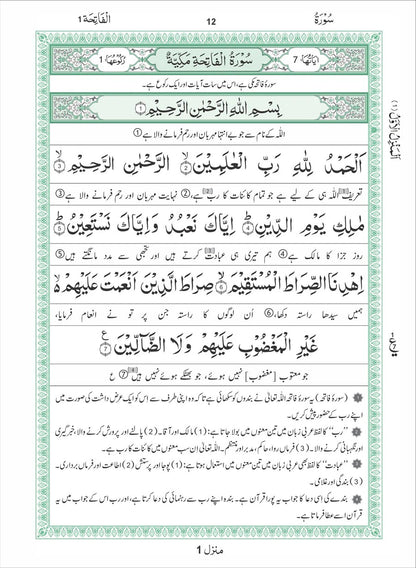 سُوْرَةُ 12 اَلْفَاتِحَة 1
اٰیَاتُهَا: 7 سُوْرَةُ الْفَاتِحَةِ مَكِّيَّةٌ رُكُوْعُهَا: 1
سورۂ فاتحہ مکی ہے، اس میں سات آیات اور ایک رکوع ہے۔
بِسْمِ اللّٰهِ الرَّحْمٰنِ الرَّحِيْمِ ①
اللہ کے نام سے جو بے انتہا مہربان اور رحم فرمانے والا ہے ①
اَلْحَمْدُ لِلّٰهِ رَبِّ الْعٰلَمِيْنَ ② الرَّحْمٰنِ الرَّحِيْمِ ③
تعریف اللہ ہی کے لیے ہے جو تمام کائنات کا رب ہے، ② نہایت مہربان اور رحم فرمانے والا ہے ③
مٰلِكِ يَوْمِ الدِّيْنِ ④ اِيَّاكَ نَعْبُدُ وَاِيَّاكَ نَسْتَعِيْنُ ⑤
روز جزا کا مالک ہے ④ ہم تیری ہی عبادت کرتے ہیں اور تجھی سے مدد مانگتے ہیں ⑤
اِهْدِنَا الصِّرَاطَ الْمُسْتَقِيْمَ ⑥ صِرَاطَ الَّذِيْنَ اَنْعَمْتَ عَلَيْهِمْ
ہمیں سیدھا راستہ دکھا، ⑥ اُن لوگوں کا راستہ جن پر تو نے انعام فرمایا،
غَيْرِ الْمَغْضُوْبِ عَلَيْهِمْ وَلَا الضَّآلِّيْنَ ⑦
جو معتوب [مغضوب] نہیں ہوئے، جو بھٹکے ہوئے نہیں ہیں ⑦ ع
(سورۂ فاتحہ) یہ سورۂ فاتحہ اللہ تعالیٰ نے بندوں کو سکھائی ہے تاکہ وہ اپنی طرف سے اس کو ایک عرض داشت کی صورت میں
اپنے رب کے حضور پیش کریں۔
"رب" کا لفظ عربی زبان میں تین معنوں میں بولا جاتا ہے: (1) مالک اور آقا۔ (2) پالنے اور پرورش کرنے والا، خبر گیری
اور نگہبانی کرنے والا۔ (3) فرماں روا، حاکم، مدبر اور منتظم۔ اللہ تعالیٰ ان سب معنوں میں کائنات کا رب ہے۔
"عبادت" کا لفظ بھی عربی زبان میں تین معنوں میں استعمال ہوتا ہے: (1) پوجا اور پرستش (2) اطاعت اور فرماں برداری۔
(3) بندگی اور غلامی۔
بندے کی اسی دعا کا جواب یہ پورا قرآن ہے۔ بندہ اپنے رب سے رہنمائی کی دعا کرتا ہے، اور رب اس کے جواب میں یہ
قرآن اسے عطا فرماتا ہے۔
منزل 1